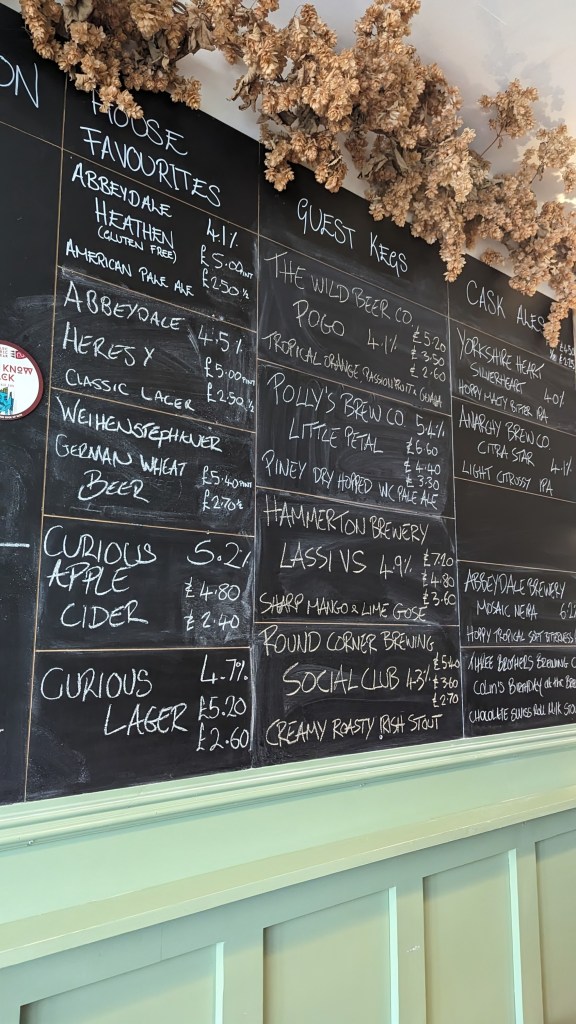 ON
HOUSE
FAVOURITES
ABBEYDALE
HEATHEN 4.1%
(GLUTEN FREE) £5.00 PINT
AMERICAN PALE ALE £2.50 ½
ABBEYDALE 4.5%
HERESY £5.00 PINT
CLASSIC LAGER £2.50 ½
WEIHENSTEPHANER
GERMAN WHEAT £5.40 PINT
BEER £2.70 ½
CURIOUS 5.2%
APPLE £4.80
CIDER £2.40
CURIOUS 4.7%
LAGER £5.20
£2.60
GUEST KEGS
THE WILD BEER CO
POGO 4.1% £5.20
£3.50
TROPICAL ORANGE, PASSIONFRUIT & GUAVA £2.60
POLLY'S BREW CO. 5.4%
LITTLE PETAL £6.60
£4.40
PINEY DRY HOPPED WC PALE ALE £3.30
HAMMERTON BREWERY
LASSI VS 4.9% £7.20
£4.80
SHARP MANGO & LIME GOSE £3.60
ROUND CORNER BREWING
SOCIAL CLUB 4.3% £5.40
£3.60
£2.70
CREAMY ROASTY IRISH STOUT
CASK ALES
YORKSHIRE HEART
SILVERHEART 4.0%
HOPPY MALTY BITTER IPA
ANARCHY BREW CO.
CITRA STAR 4.1%
LIGHT CITRUSSY IPA
ABBEYDALE BREWERY
MOSAIC NEIPA 6.2%
HOPPY TROPICAL SOFT BITTERNESS
THREE BROTHERS BREWING C
COLIN'S BIRTHDAY AT THE BRE
CHOCOLATE SWISS ROLL MILK STOU
KNOW